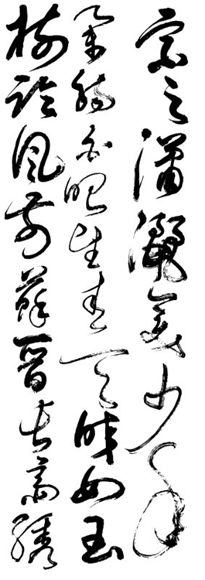 宗之瀟灑美少年
舉觴白眼望青天皎如玉
樹臨風前蘇晉長齋繡